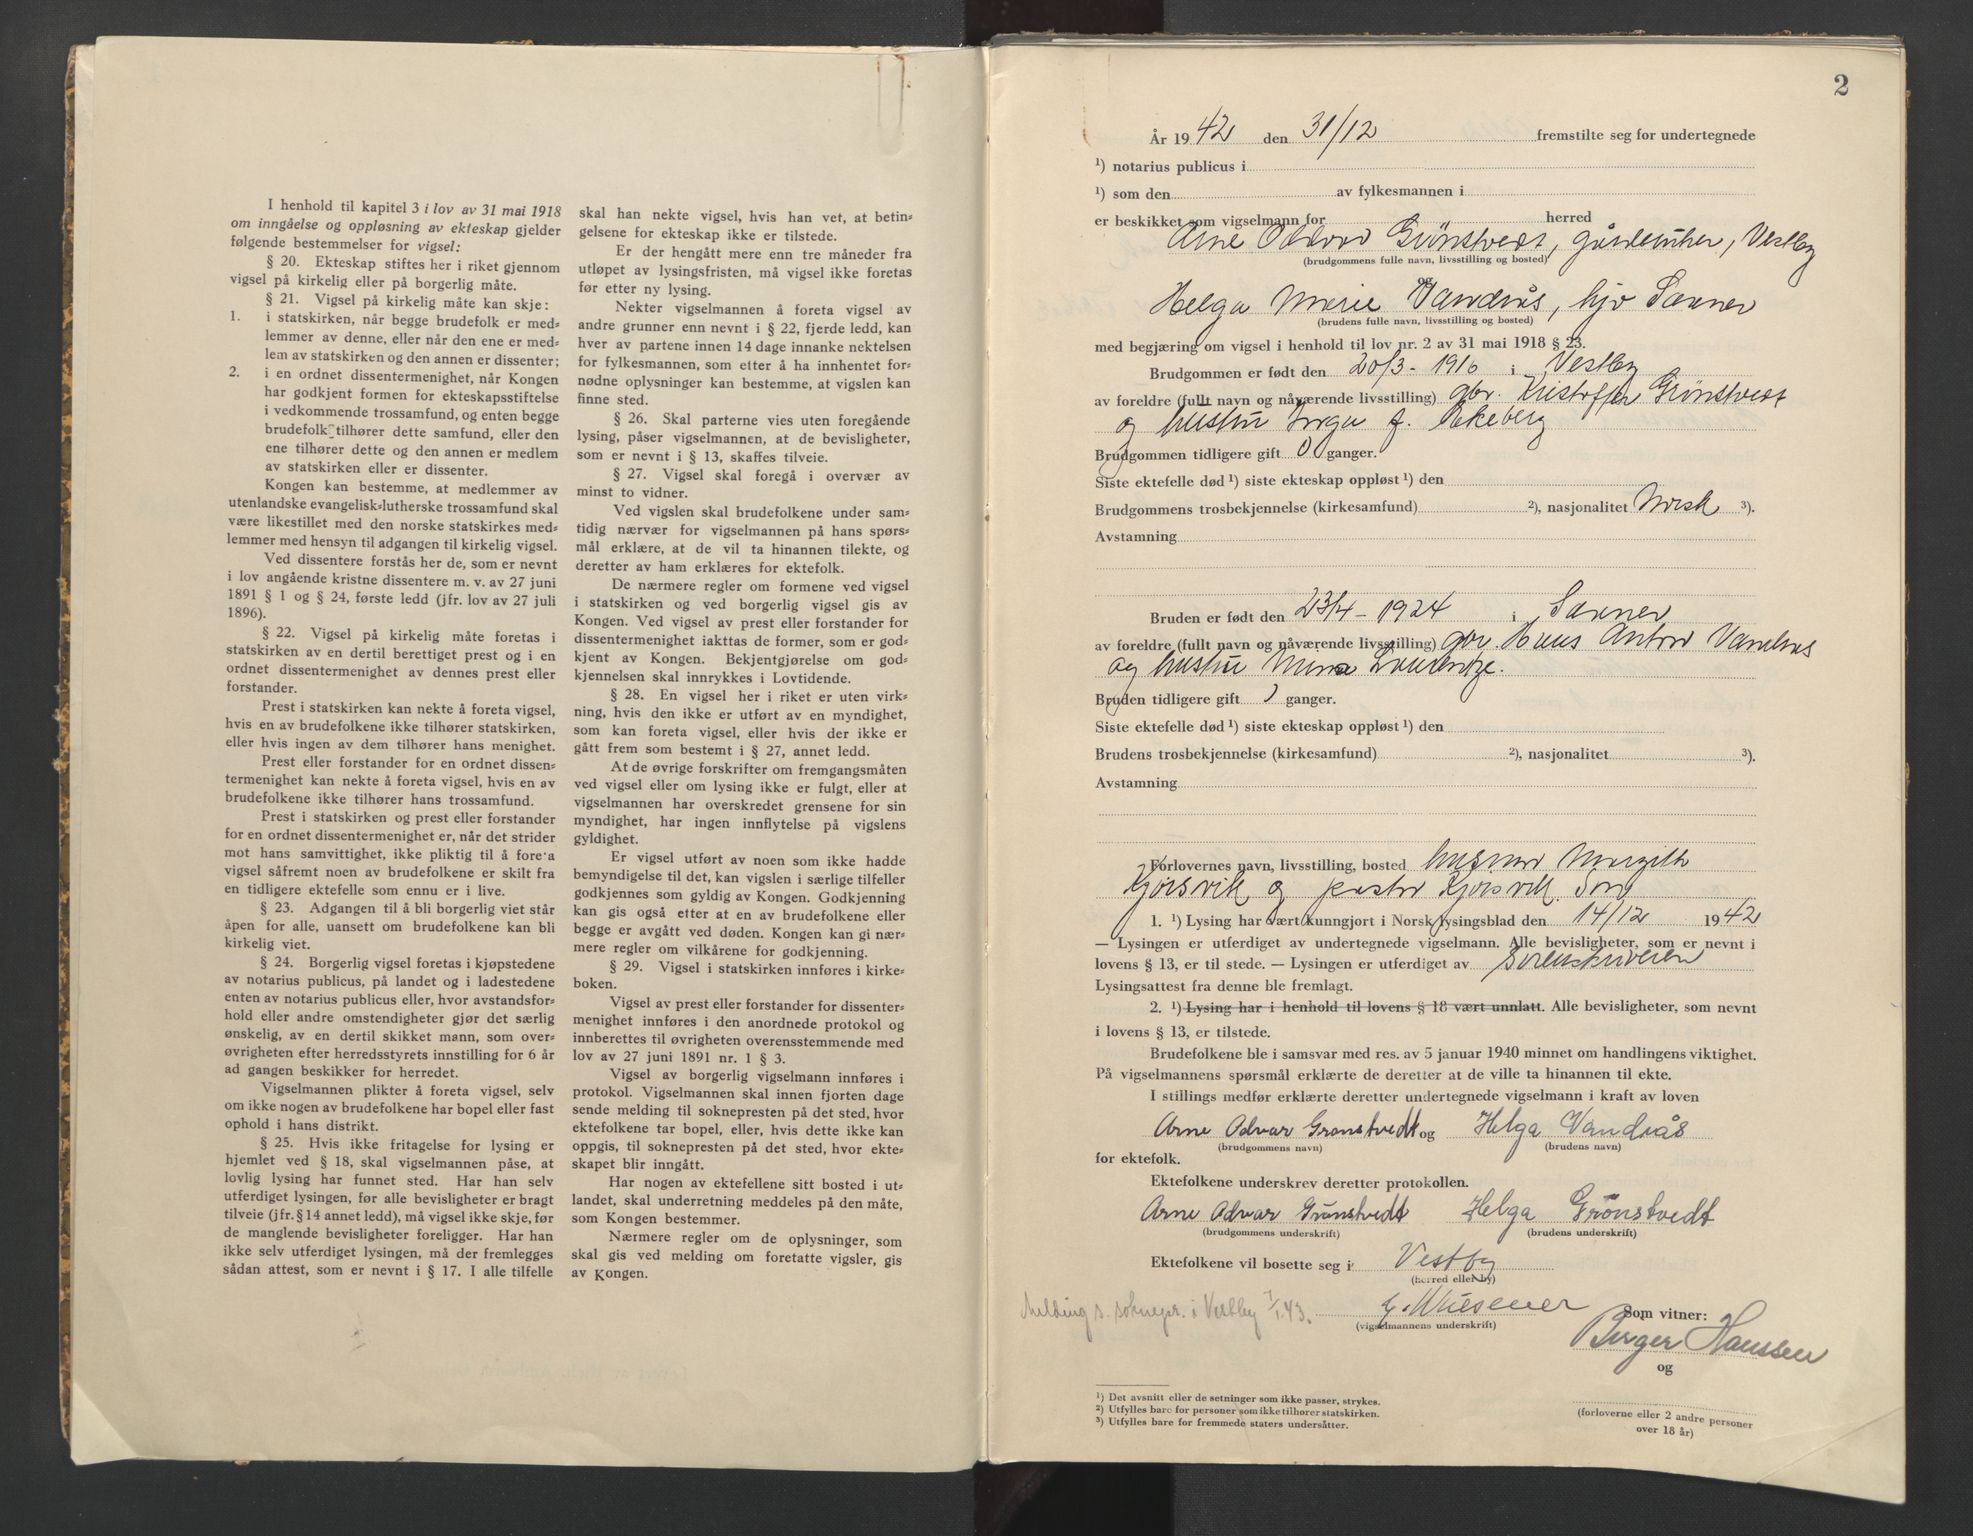 I henhold til kapitel 3 i lov av 31 mai 1918
om inngåelse og oppløsning av ekteskap gjelder
følgende bestemmelser for vigsel:
§ 20. Ekteskap stiftes her i riket gjennom
vigsel på kirkelig eller på borgerlig måte.
§ 21. Vigsel på kirkelig måte kan skje:
1. i statskirken, når begge brudefolk er med=
lemmer av denne, eller når den ene er med=
lem av statskirken og den annen er dissenter;
2. i en ordnet dissentermenighet, når Kongen
har godkjent formen for ekteskapsstiftelse
i vedkommende trossamfund, og enten begge
brudefolk tilhører dette samfund, eller den
ene tilhører dette og den annen er medlem
av statskirken eller er dissenter.
Kongen kan bestemme, at medlemmer av
utenlandske evangelisk=lutherske trossamfund skal
være likestillet med den norske statskirkes med=
lemmer med hensyn til adgangen til kirkelig vigsel.
Ved dissentere forstås her de, som er nevnt
i lov angående kristne dissentere m. v. av 27 juni
1891 § 1 og § 24, første ledd (jfr. lov av 27 juli
1896).
§ 22. Vigsel på kirkelig måte foretas i
statskirken av en dertil berettiget prest og i en
ordnet dissentermenighet av dennes prest eller
forstander.
Prest i statskirken kan nekte å foreta vigsel,
hvis en av brudefolkene ikke tilhører statskirken,
eller hvis ingen av dem tilhører hans menighet.
Prest eller forstander for en ordnet dissen=
termenighet kan nekte å foreta vigsel, hvis en av
brudefolkene ikke tilhører hans trossamfund.
Prest i statskirken og prest eller forstander
for en ordnet dissentermenighet er, når det strider
mot hans samvittighet, ikke pliktig til å fore'a
vigsel såfremt noen av brudefolkene er skilt fra
en tidligere ektefelle som ennu er i live.
§ 23. Adgangen til å bli borgerlig viet står
åpen for alle, uansett om brudefolkene kan bli
kirkelig viet.
§ 24. Borgerlig vigsel foretas i kjøpstedene
av notarius publicus, på landet og i ladestedene
enten av notarius publicus eller, hvor avstandsfor=
hold eller andre omstendigheter gjør det særlig
ønskelig, av en dertil skikket mann, som over=
øvrigheten efter herredsstyrets innstilling for 6 år
ad gangen beskikker for herredet.
Vigselmannen plikter å foreta vigsel, selv
om ikke nogen av brudefolkene har bopel eller fast
ophold i hans distrikt.
§ 25. Hvis ikke fritagelse for lysing er
hjemlet ved § 18, skal vigselmannen påse, at
lovlig lysing har funnet sted. Har han selv
utferdiget lysingen, før alle bevisligheter er bragt
tilveie (jfr. § 14 annet ledd), må vigsel ikke skje, før
de manglende bevisligheter foreligger. Har han
ikke selv utferdiget lysingen, må der fremlegges
sådan attest, som er nevnt i § 17. I alle tilfelle
skal han nekte vigsel, hvis han vet, at betin=
gelsene for ekteskap ikke er tilstede.
Er der hengått mere enn tre måneder fra
utløpet av lysingsfristen, må vigsel ikke foretas
før etter ny lysing.
Nekter vigselmannen å foreta vigsel av
andre grunner enn nevnt i § 22, fjerde ledd, kan
hver av partene innen 14 dage innanke nektelsen
for fylkesmannen, som etter å ha innhentet for=
nødne oplysninger kan bestemme, at vigslen kan
finne sted.
§ 26. Skal parterne vies uten foregående
lysing, påser vigselmannen, at de bevisligheter,
som er nevnt i § 13, skaffes tilveie.
§ 27. Vigsel skal foregå i overvær av
minst to vidner.
Ved vigslen skal brudefolkene under sam=
tidig nærvær for vigselmannen på hans spørs=
mål erklære, at de vil ta hinannen tilekte, og
deretter av ham erklæres for ektefolk.
De nærmere regler om formene ved vigsel
i statskirken og ved borgerlig vigsel gis av
Kongen. Ved vigsel av prest eller forstander for
dissentermenighet iakttas de former, som er god=
kjent av Kongen. Bekjentgjørelse om god=
kjennelsen skal innrykkes i Lovtidende.
§ 28. En vigsel her i riket er uten virk=
ning, hvis den ikke er utført av en myndighet,
som kan foreta vigsel, eller hvis der ikke er
gått frem som bestemt i § 27, annet ledd.
At de øvrige forskrifter om fremgangsmåten
ved vigsel eller om lysing ikke er fulgt, eller at
vigselmannen har overskredet grensene for sin
myndighet, har ingen innflytelse på vigslens
gyldighet.
Er vigsel utført av noen som ikke hadde
bemyndigelse til det, kan vigslen i særlige tilfeller
godkjennes som gyldig av Kongen. Godkjenning
kan gis også etter at en av brudefolkene eller
begge er avgått ved døden. Kongen kan gi nær=
mere regler om vilkårene for godkjenning.
§ 29. Vigsel i statskirken innføres i kirke=
boken.
Vigsel av prest eller forstander for dissenter=
menighet innføres i den anordnede protokol og
innberettes til øvrigheten overensstemmende med
lov av 27 juni 1891 nr. 1 § 3.
Vigsel av borgerlig vigselmann innføres i
protokol. Vigselmannen skal innen fjorten dage
sende melding til soknepresten på det sted, hvor
ektefolkene tar bopel, eller, hvis dette ikke kan
oppgis, til soknepresten på det sted, hvor ekte=
skapet blir inngått.
Har nogen av ektefellene sitt bosted i ut=
landet, skal underretning meddeles på den måte,
som Kongen bestemmer.
Nærmere regler om de oplysninger, som
skal gis ved melding om foretatte vigsler, gis
av Kongen.
2
År 1942 den 31/12 fremstilte seg for undertegnede
¹) notarius publicus i
¹) som den av fylkesmannen i
er beskikket som vigselmann for herred
Arne Oddvar Grönstvedt, gårdbruker, Vestby
(brudgommens fulle navn, livsstilling og bosted)
og
Helga Marie Vandrås, hjv Saxner
(brudens fulle navn, livsstilling og bosted)
med begjæring om vigsel i henhold til lov nr. 2 av 31 mai 1918 § 23.
Brudgommen er født den 20/3 - 1916 i Vestby
av foreldre (fullt navn og nåværende livsstilling) gbr. Kristoffer Grønstvedt
og hustru Inga f. Ekeberg
Brudgommen tidligere gift 0 ganger.
Siste ektefelle død ¹) siste ekteskap oppløst ¹) den
Brudgommens trosbekjennelse (kirkesamfund) ²), nasjonalitet Norsk ³).
Avstamning
Bruden er født den 23/4 - 1924 i Saxner
av foreldre (fullt navn og nåværende livsstilling) gbr. Hans Anton Vandrås
og hustru
Bruden tidligere gift ganger.
Siste ektefelle død ¹) siste ekteskap oppløst ¹) den
Brudens trosbekjennelse (kirkesamfund) ²), nasjonalitet ³).
Avstamning
Forlovernes navn, livsstilling, bosted Margith
Kjörsvik og pastor Kjörsvik
1. ¹) Lysing har vært kunngjort i Norsk lysingsblad den 14/12 1942
— Lysingen er utferdiget av undertegnede vigselmann. Alle bevisligheter, som er nevnt i
lovens § 13, er til stede. — Lysingen er utferdiget av Sorenskriveren
Lysingsattest fra denne ble fremlagt.
2. ¹) Lysing har i henhold til lovens § 18 vært unnlatt. Alle bevisligheter, som nevnt
i lovens § 13, er tilstede.
Brudefolkene ble i samsvar med res. av 5 januar 1940 minnet om handlingens viktighet.
På vigselmannens spørsmål erklærte de deretter at de ville ta hinannen til ekte.
I stillings medfør erklærte deretter undertegnede vigselmann i kraft av loven
Arne Odvar Grønstvedt og Helga Vandrås
(brudgommens navn) (brudens navn)
for ektefolk.
Ektefolkene underskrev deretter protokollen.
Arne Odvar Grönstvedt Helga Grönstvedt
(brudgommens underskrift) (brudens underskrift)
Ektefolkene vil bosette seg i Vestby
(herred eller by)
Melding s. sognepr. i Vestby 7/1.43. Som vitner:
(vigselmannens underskrift)
Birger Hanssen
og
¹) Det avsnitt eller de setninger som ikke passer, strykes.
²) Utfylles bare for personer som ikke tilhører statskirken.
³) Utfylles bare for fremmede staters undersåtter.
(forloverne eller 2 andre personer
over 18 år)